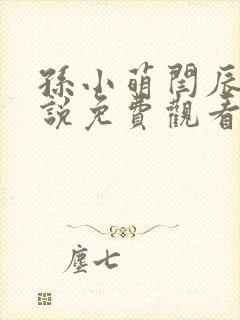 孫小萌閆辰
說免費觀看
塵七